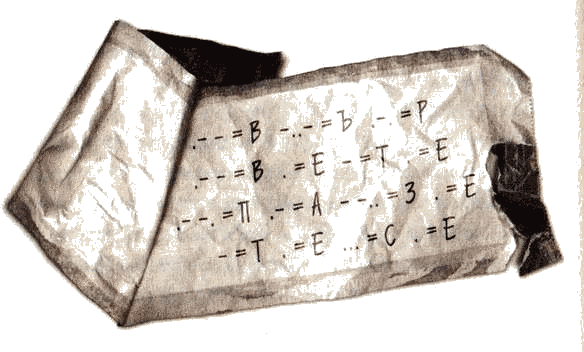 .-- = В -..- = Ъ .-. = Р
.-- = В . = Е - = Т . = Е
.--. = П .- = А --.. = З . = Е
- = Т . = Е ... = С . = Е